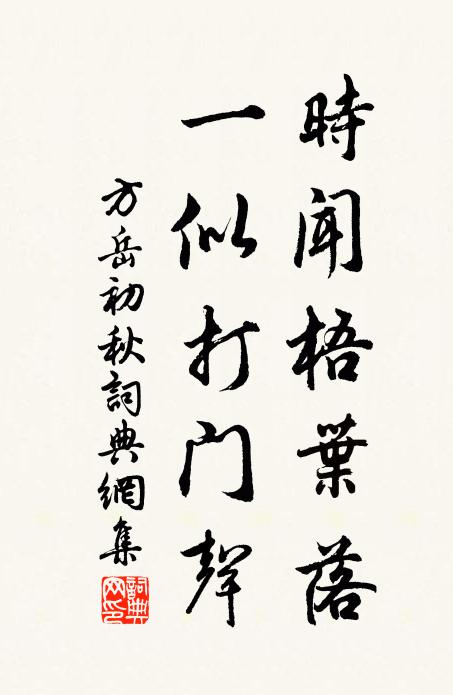 時聞梧葉落
一似打门聲
方岳初秋詞典網集
詞典网印